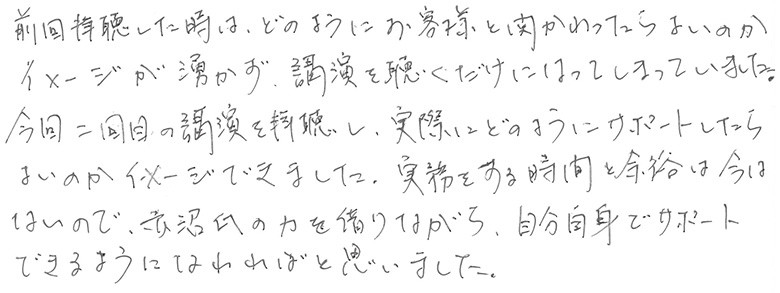 前回拝聴した時は、どのようにお客様と関わったらよいのか
イメージが湧かず、講演を聴くだけになってしまっていました。
今回二回目の講演を拝聴し、実際にどのようにサポートしたら
よいのかイメージできました。実務をする時間と余裕は今は
ないので、赤沼氏の力を借りながら、自分自身でサポート
できるようになれればと思いました。